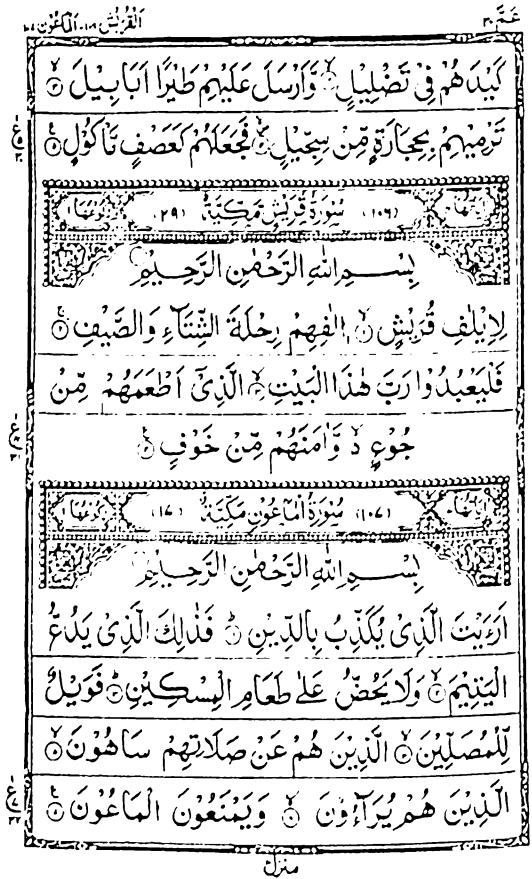 عَمَّ ۳۰
القُرَيْش ۱۰۶ - الماعُون ۱۰۷
كَيْدَهُمْ فِيْ تَضْلِيْلٍ ۙ﴿۲﴾ وَّاَرْسَلَ عَلَيْهِمْ طَيْرًا اَبَابِيْلَ ۙ﴿۳﴾
تَرْمِيْهِمْ بِحِجَارَةٍ مِّنْ سِجِّيْلٍ ۙ﴿۴﴾ فَجَعَلَهُمْ كَعَصْفٍ مَّاْكُوْلٍ ﴿۵﴾
(۱۰۶) سُوْرَةُ قُرَيْشٍ مَكِّيَّةٌ (۲۹)
بِسْمِ اللّٰهِ الرَّحْمٰنِ الرَّحِيْمِ
لِاِيْلٰفِ قُرَيْشٍ ۙ﴿۱﴾ اٖلٰفِهِمْ رِحْلَةَ الشِّتَآءِ وَالصَّيْفِ ﴿۲﴾
فَلْيَعْبُدُوْا رَبَّ هٰذَا الْبَيْتِ ۙ﴿۳﴾ الَّذِيْۤ اَطْعَمَهُمْ مِّنْ
جُوْعٍ ۙ وَّاٰمَنَهُمْ مِّنْ خَوْفٍ ﴿۴﴾
(۱۰۷) سُوْرَةُ الْمَاعُوْنِ مَكِّيَّةٌ (۱۷)
بِسْمِ اللّٰهِ الرَّحْمٰنِ الرَّحِيْمِ
اَرَءَيْتَ الَّذِيْ يُكَذِّبُ بِالدِّيْنِ ؕ﴿۱﴾ فَذٰلِكَ الَّذِيْ يَدُعُّ
الْيَتِيْمَ ۙ﴿۲﴾ وَلَا يَحُضُّ عَلٰى طَعَامِ الْمِسْكِيْنِ ؕ﴿۳﴾ فَوَيْلٌ
لِّلْمُصَلِّيْنَ ۙ﴿۴﴾ الَّذِيْنَ هُمْ عَنْ صَلَاتِهِمْ سَاهُوْنَ ۙ﴿۵﴾
الَّذِيْنَ هُمْ يُرَآءُوْنَ ۙ﴿۶﴾ وَيَمْنَعُوْنَ الْمَاعُوْنَ ﴿۷﴾
منزل